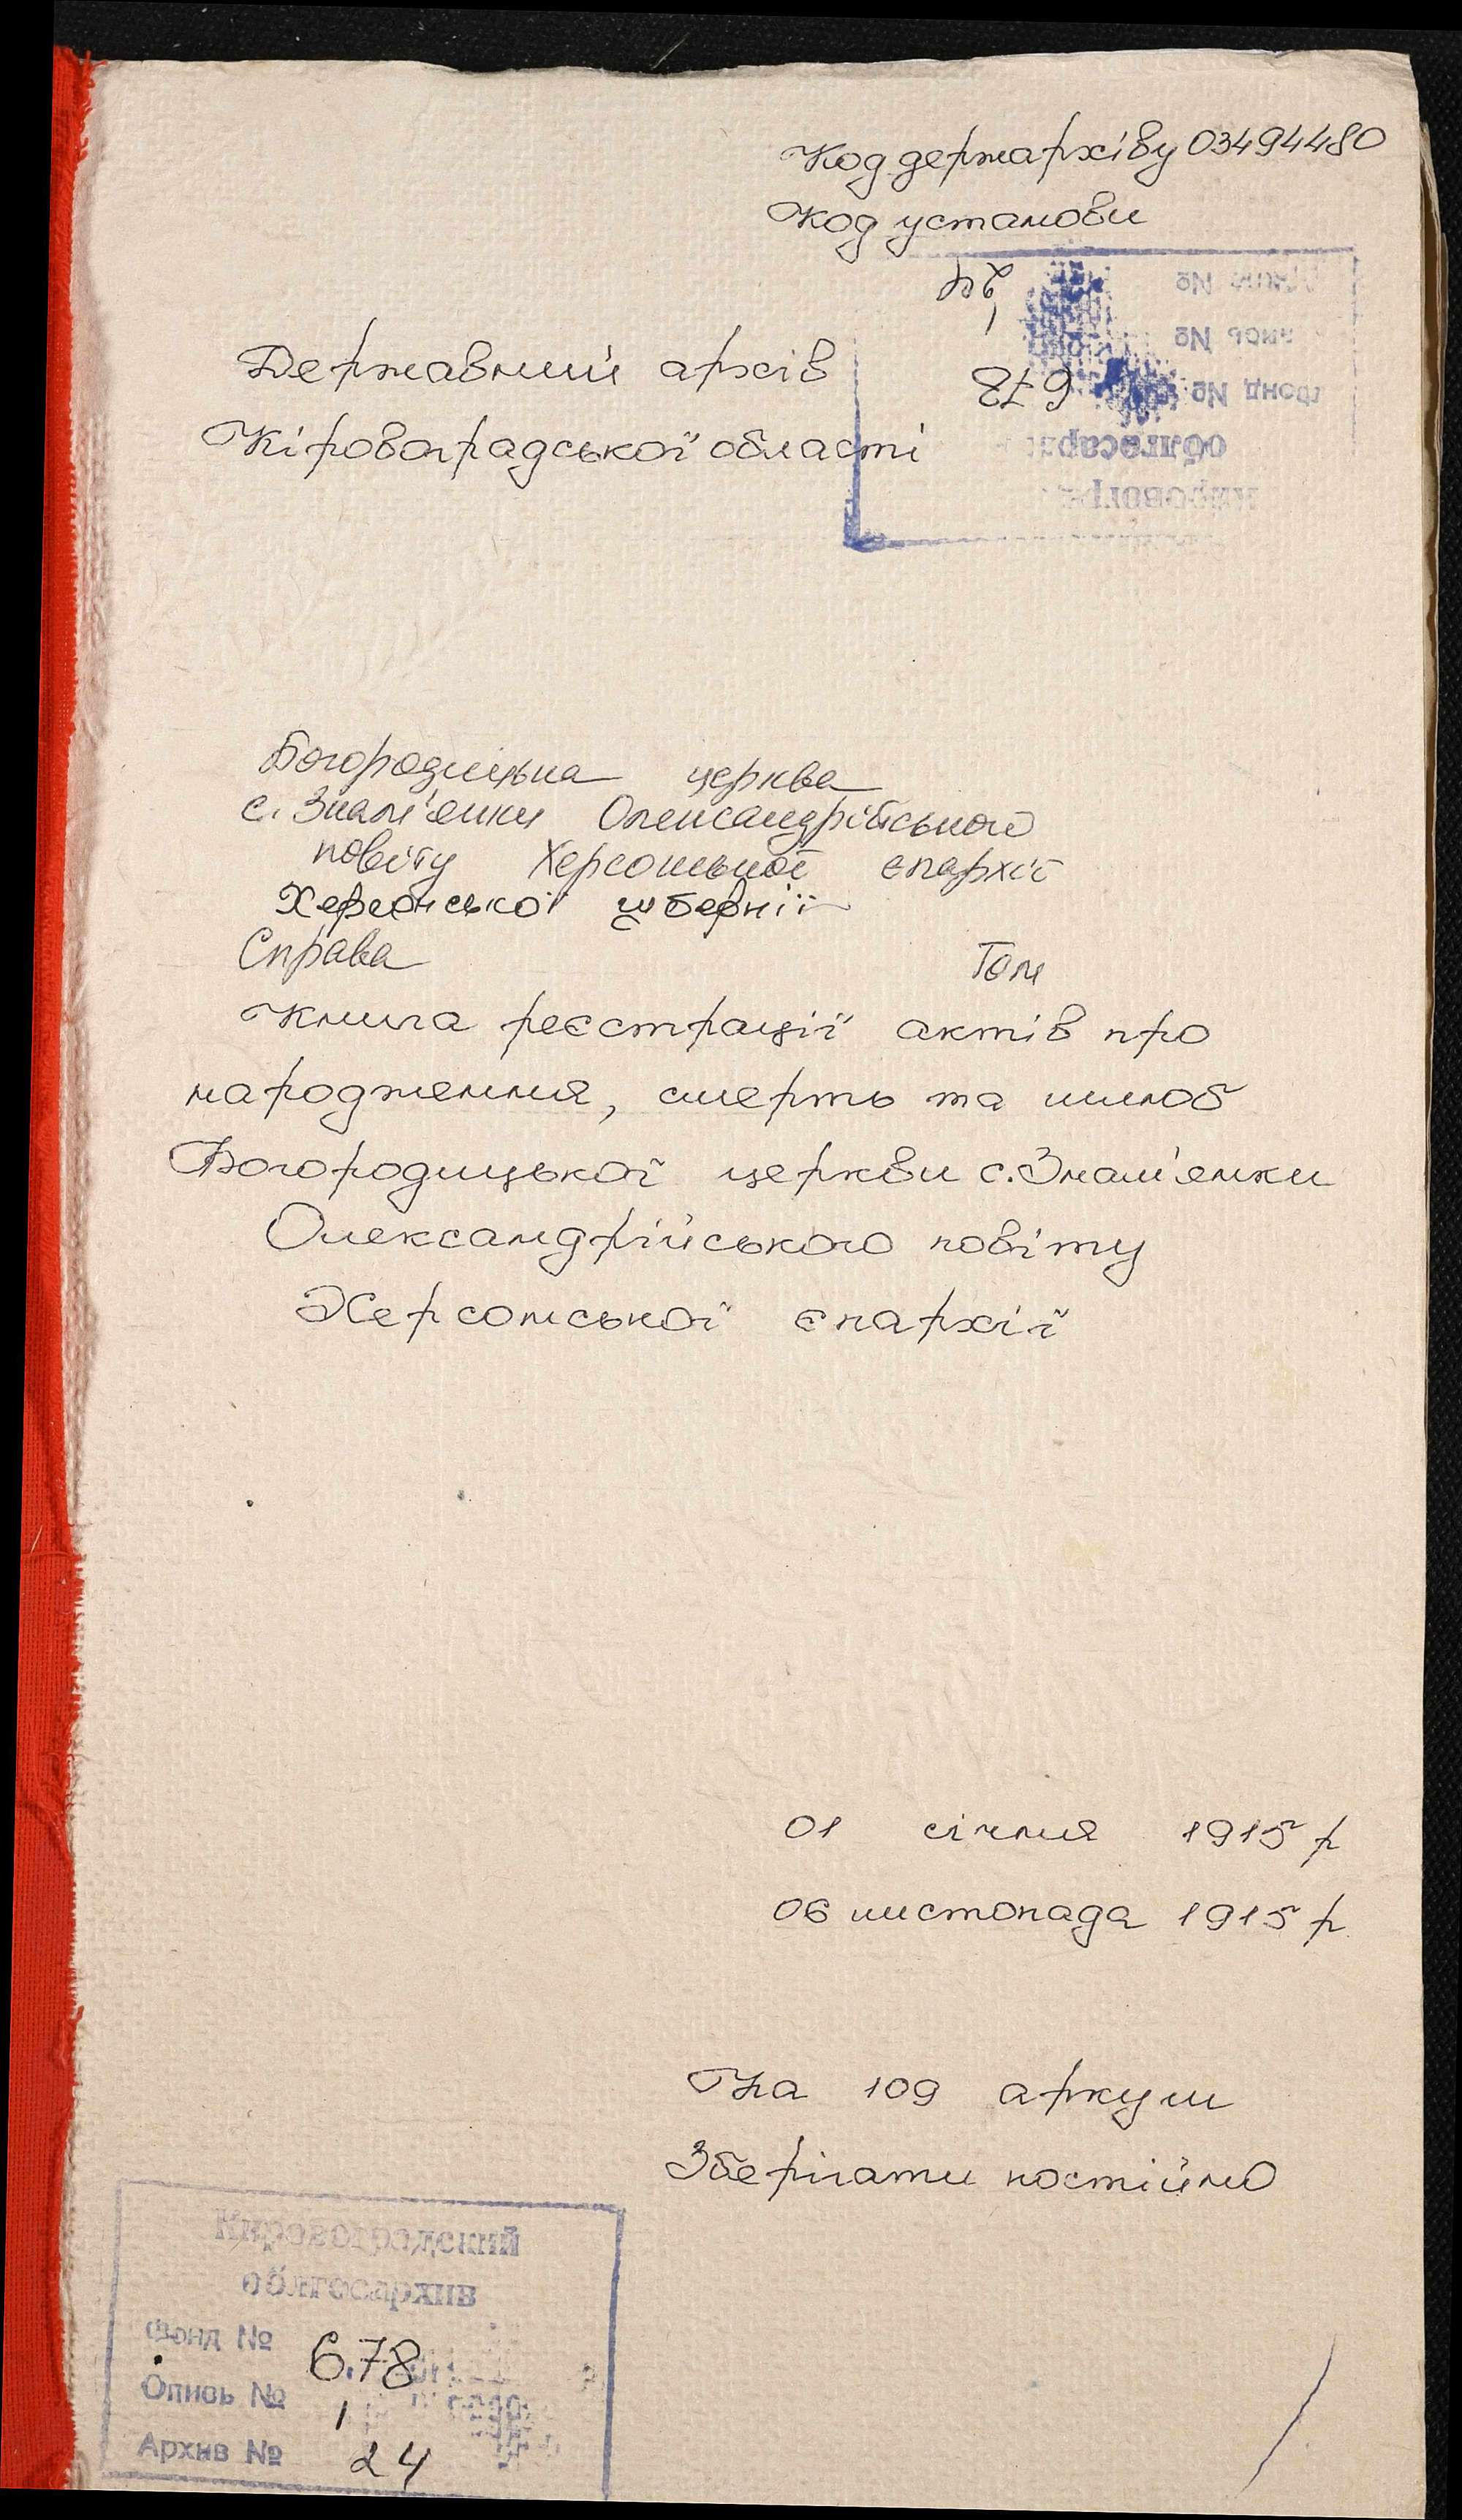 Код держархіву 03494480
Код установи
Державний архів
Кіровоградської області
24
1
678
Архив №
Опись №
Фонд №
облгосар
Кировогр
Богородицька церква
с. Знам'янки Олександрійського
повіту Херсонської єпархії
Херсонської губернії
Справа Том
Книга реєстрації актів про
народження, смерть та шлюб
Богородицької церкви с. Знам'янки
Олександрійського повіту
Херсонської єпархії
01 січня 1915 р
06 листопада 1915 р.
На 109 аркуш
Зберігати постійно
Кировоградский
облгосархив
Фонд № 678
Опись № 1
Архив № 24